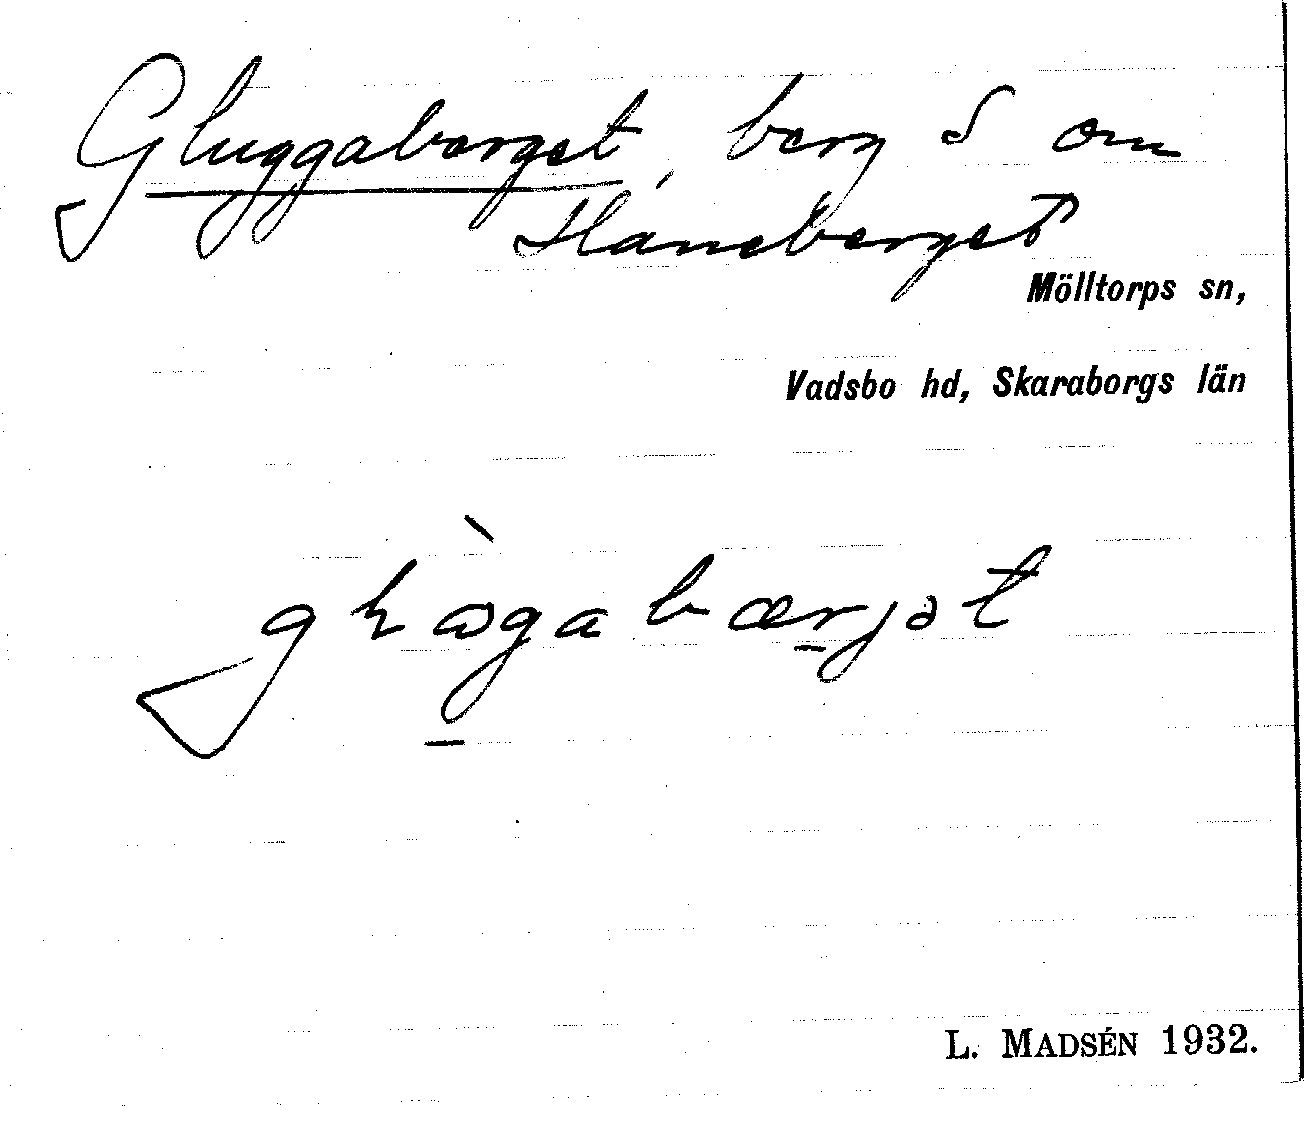 Gluggaberget, berg S om
Håneberget
Mölltorps sn,
Vadsbo hd, Skaraborgs län
L. MADSÉN 1932.